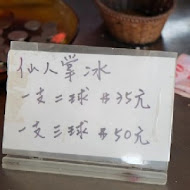 仙人掌冰
一支二球 $35元
一支三球 $50元